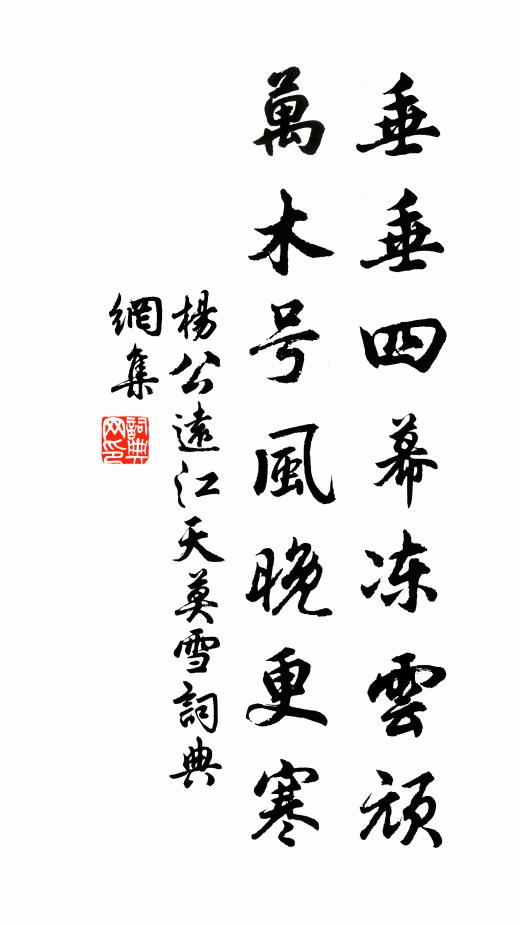 垂垂四幕冻雲頑
萬木号風晚更寒
楊公遠江天莫雪詞典
網集
詞典
网印